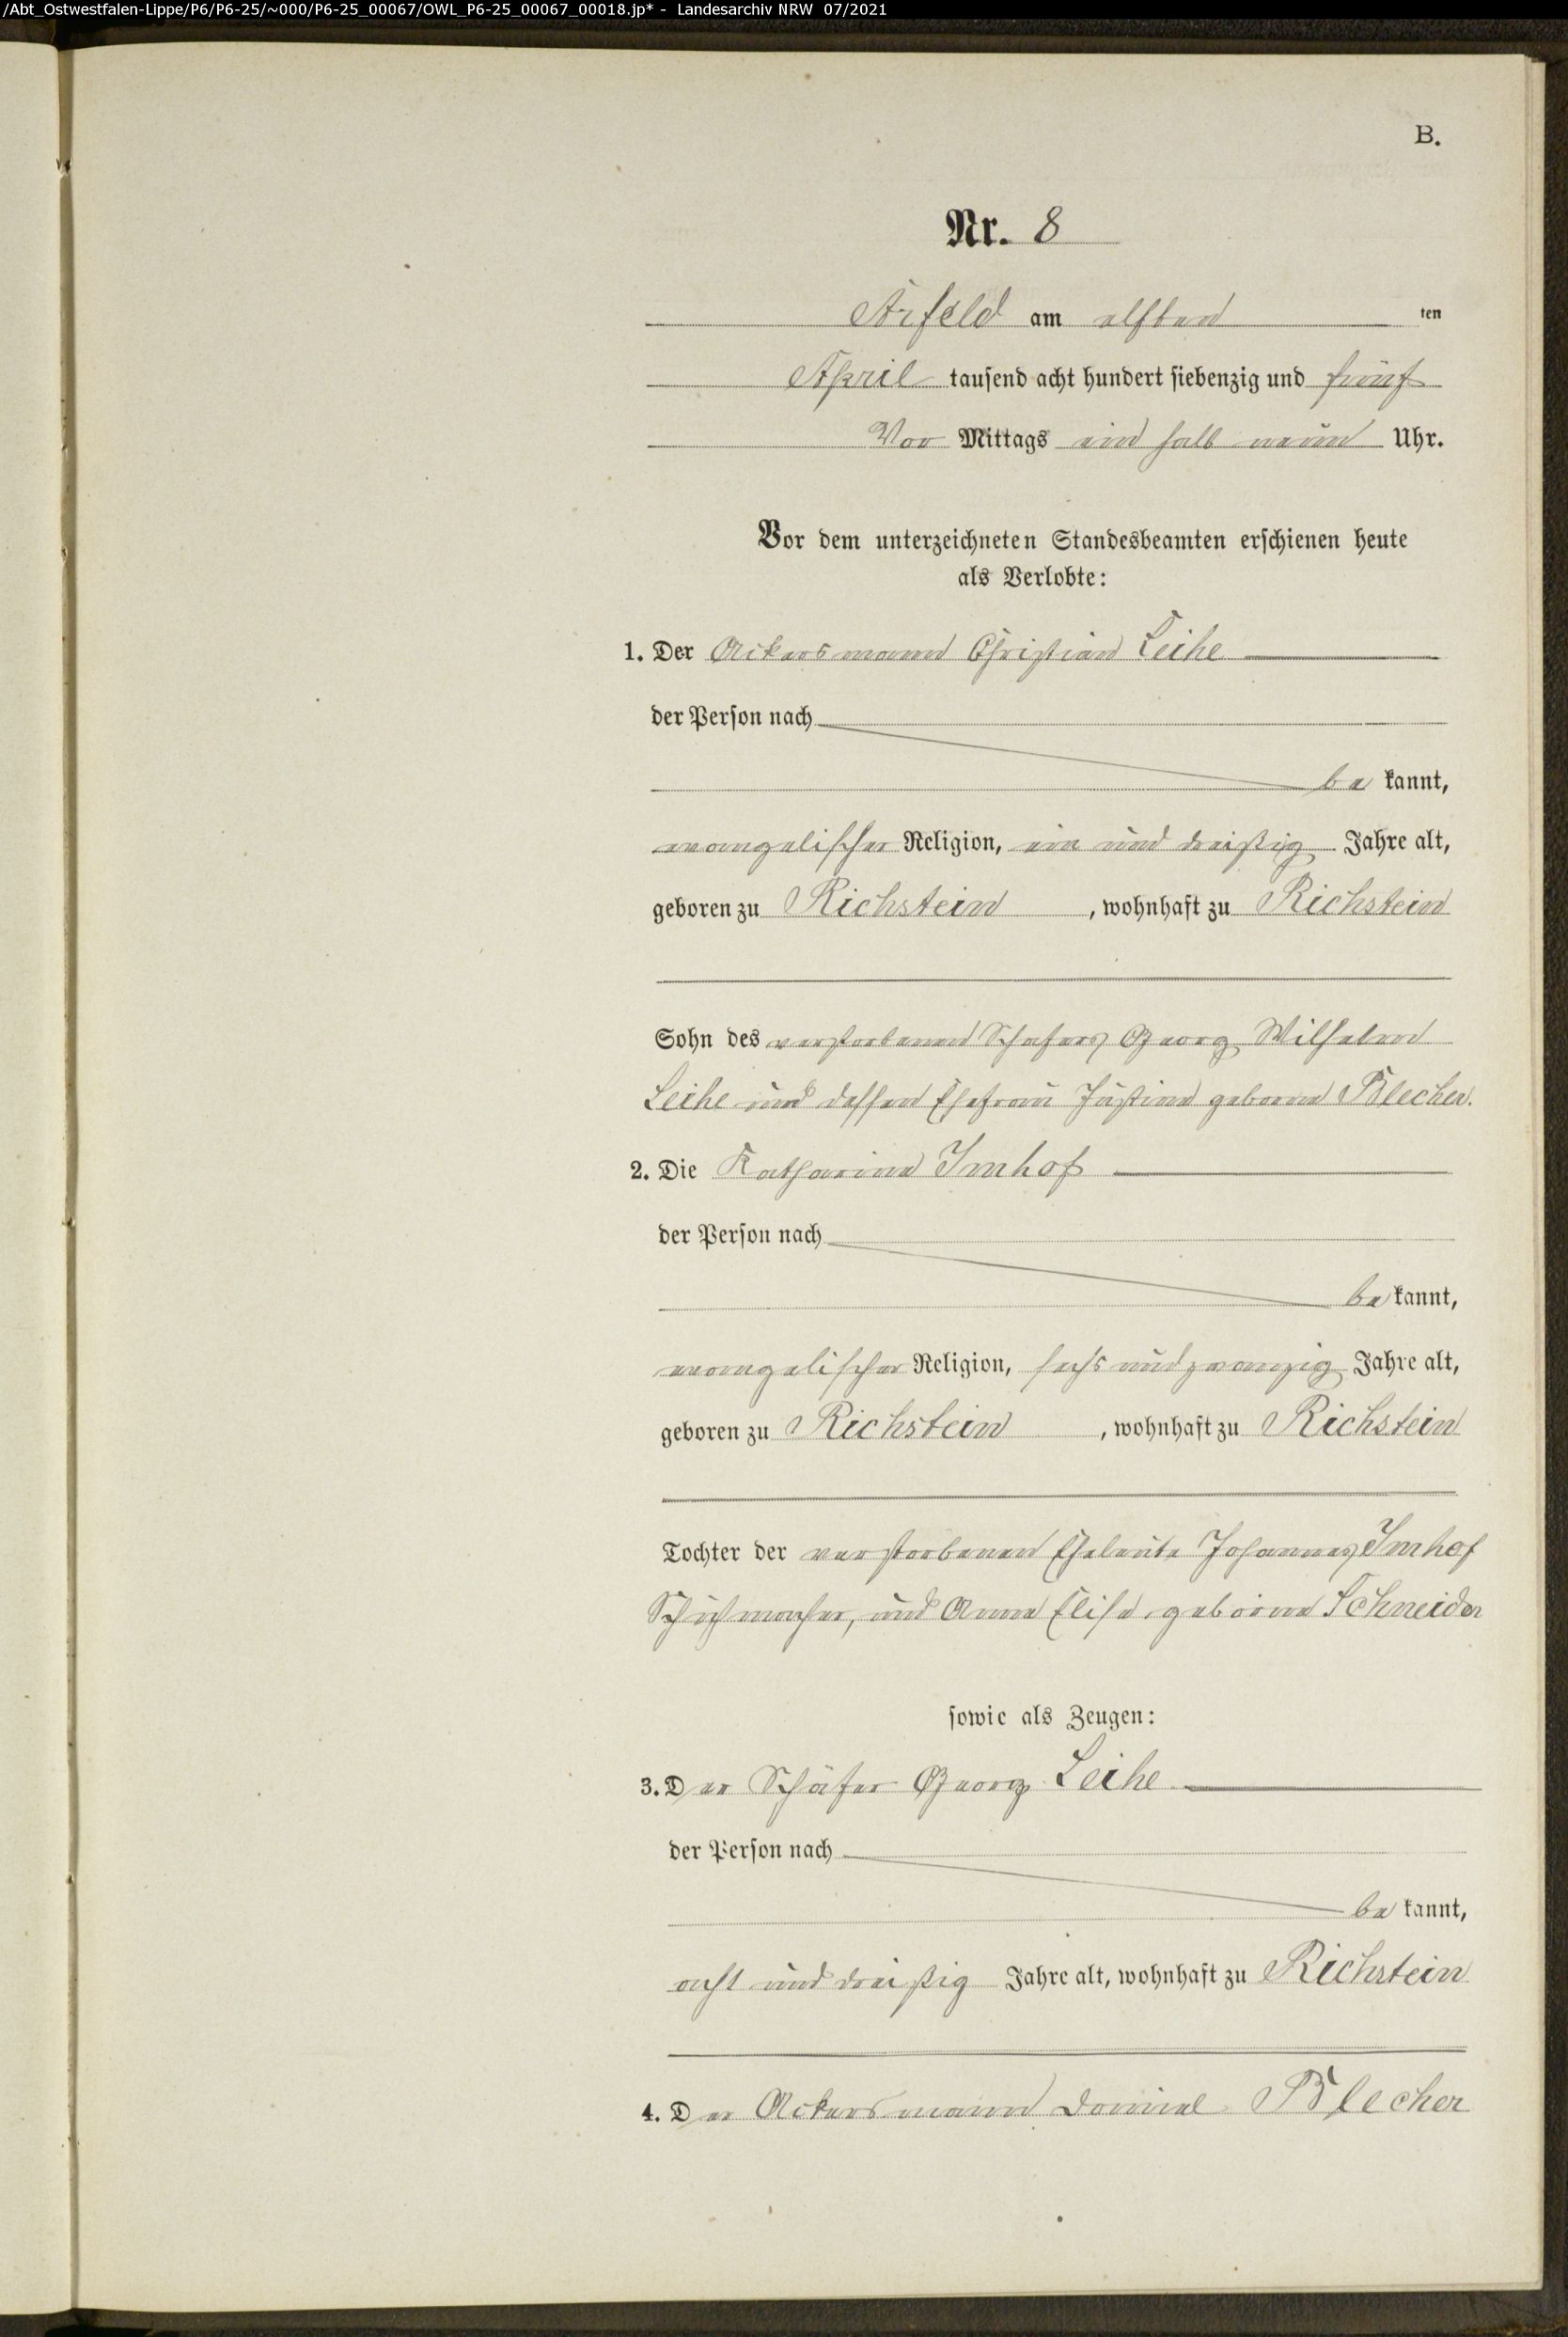 /Abt_Ostwestfalen-Lippe/P6/P6-25/~000/P6-25_00067/OWL_P6-25_00067_00018.jp* - Landesarchiv NRW 07/2021
B.
Nr. 8
Arfeld am elften ten
April tausend acht hundert siebenzig und fünf
Vor Mittags ein halb neun Uhr.
Vor dem unterzeichneten Standesbeamten erschienen heute
als Verlobte:
1. Der Ackersmann Christian Leihe
der Person nach
be kannt,
evangelischer Religion, ein und dreißig Jahre alt,
geboren zu Richstein, wohnhaft zu Richstein
Sohn des verstorbenen Schafers Georg Wilhelm
Leihe und dessen Ehefrau Justine geborne Blecher.
2. Die Katharine Imhof
der Person nach
be kannt,
evangelischer Religion, sechs und zwanzig Jahre alt,
geboren zu Richstein, wohnhaft zu Richstein
Tochter der verstorbenen Eheleute Johannes Imhof
Schuhmacher, und Anna Elise geborne Schneider
sowie als Zeugen:
3. Der Schäfer Georg Leihe
der Person nach
be kannt,
acht und dreißig Jahre alt, wohnhaft zu Richstein
4. Der Ackersmann Daniel Blecher